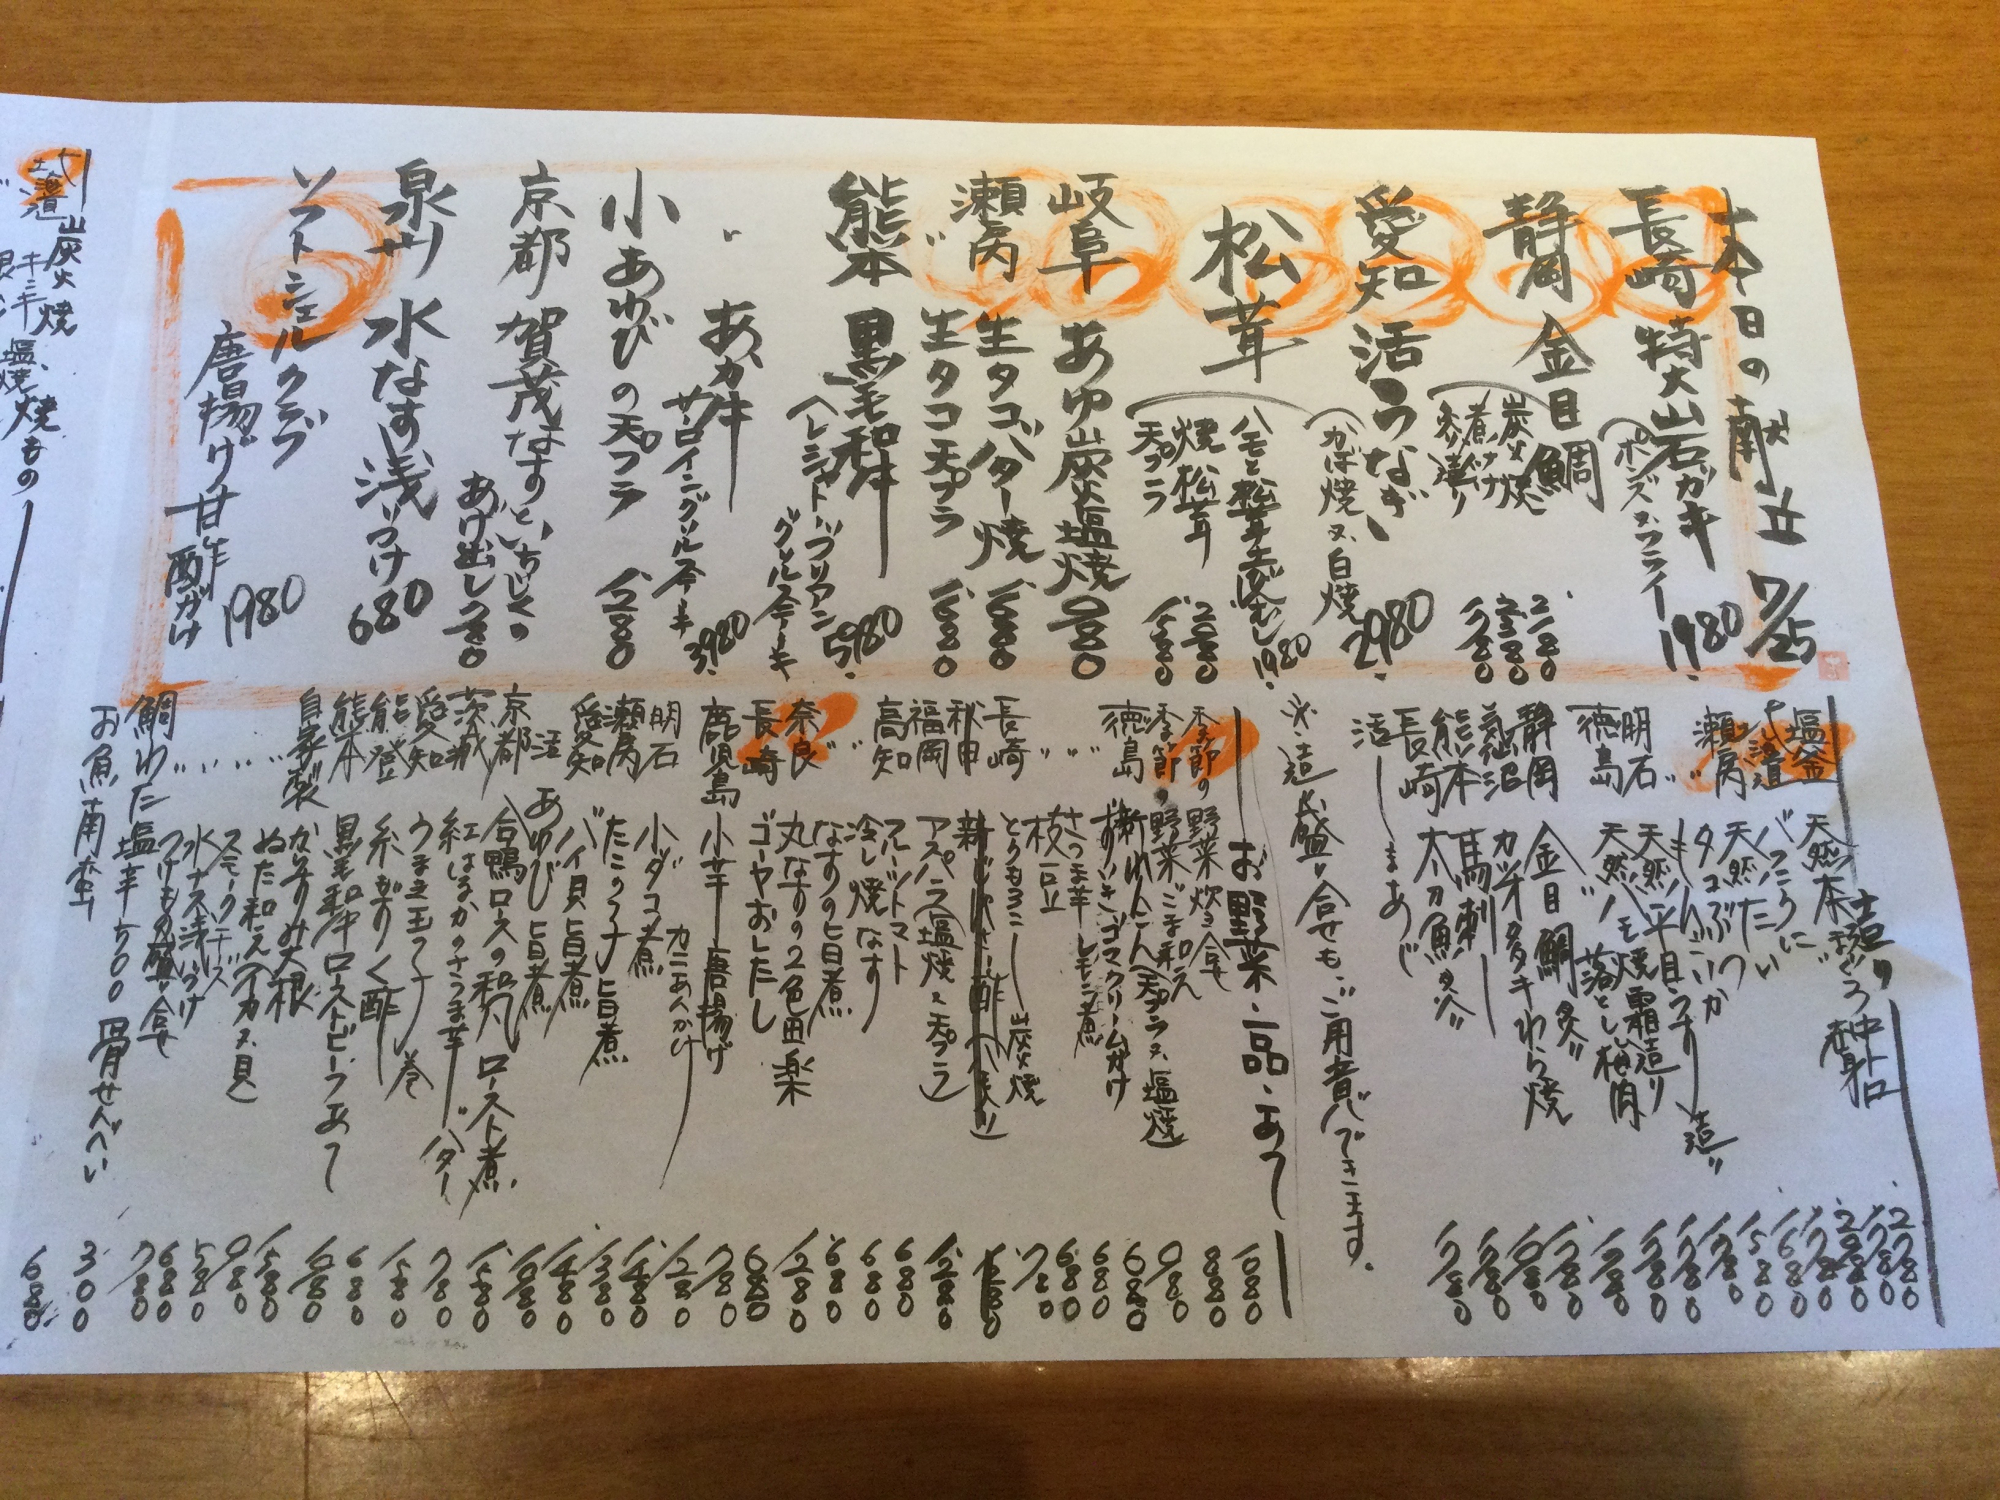 本日の献立 7/25
長崎 特大岩ガキ
(ポンズ又フライ 1980
静岡 金目鯛
炭火焼 2180
煮付け 2380
炙り造り 1780
愛知 活うなぎ
(かば焼又白焼 2980
松茸
ハモと松茸土びんむし 1980
焼松茸 2080
天プラ 1580
岐阜 あゆ炭火塩焼 980
瀬戸内 生タコバター焼 1680
〃 生タコ天プラ 1680
熊本 黒毛和牛
(ヘレシャトーブリアン
グリル ステーキ 5980
〃 あか牛
サーロイングリルステーキ 3980
小あゆびの天プラ 1280
京都 賀茂なすといちじくの
あげ出し 980
泉州 水なす浅づけ 680
ソフトシェルクラブ
唐揚げ甘酢がけ 1980
造り
塩釜 天然本まぐろ 中トロ 2780
赤身 1780
北海道 バフンうに 2980
瀬戸内 天然たい 1780
〃 タコぶつ 1680
もんごいか 1580
明石 天然平目うす造り 1780
徳島 天然ハモ 焼霜造り 1780
〃 落とし梅肉 1780
静岡 金目鯛 炙り 1780
気仙沼 カツオ タタキわら焼 1280
熊本 馬刺し
長崎 太刀魚タタキ
活〆 しまあじ 1780
※造り盛り合せも、ご用意ができます。
お野菜・一品・あて
季節の野菜炊き合せ 1080
季節の野菜ごま和え 880
徳島 新れんこん(天プラ又塩焼) 980
〃 新ずいきゴマクリームがけ 680
〃 さつま芋レモン煮 680
枝豆 680
長崎 とうもろこし 炭火焼 780
福岡 アスパラ(塩焼又天プラ) 1280
高知 フルーツトマト 680
〃 冷し焼なす 680
〃 なすの旨煮 680
奈良 丸なすの2色田楽 1280
長崎 ゴーヤおしたし 680
鹿児島 小芋 唐揚げ 780
カニあんかけ 1280
明石 小ダコ煮 1480
瀬戸内 たこの子旨煮 1380
愛知 バイ貝旨煮 1480
活あゆび 旨煮
京都 合鴨ロースの和風ロースト煮 1580
茨城 紅はるかのさつま芋 バター 780
愛知 うまき玉子巻 1580
能登 糸もずく酢 680
熊本 黒毛和牛ローストビーフあて
自家製 からすみ大根 1580
〃 ぬた和え(イカ又貝) 980
〃 スモークチーズ 580
〃 水ナス浅づけ 680
〃 つけもの盛り合せ 780
鯛わた塩辛
お魚南蛮 680
骨せんべい 300
炭火焼、塩焼、焼もの